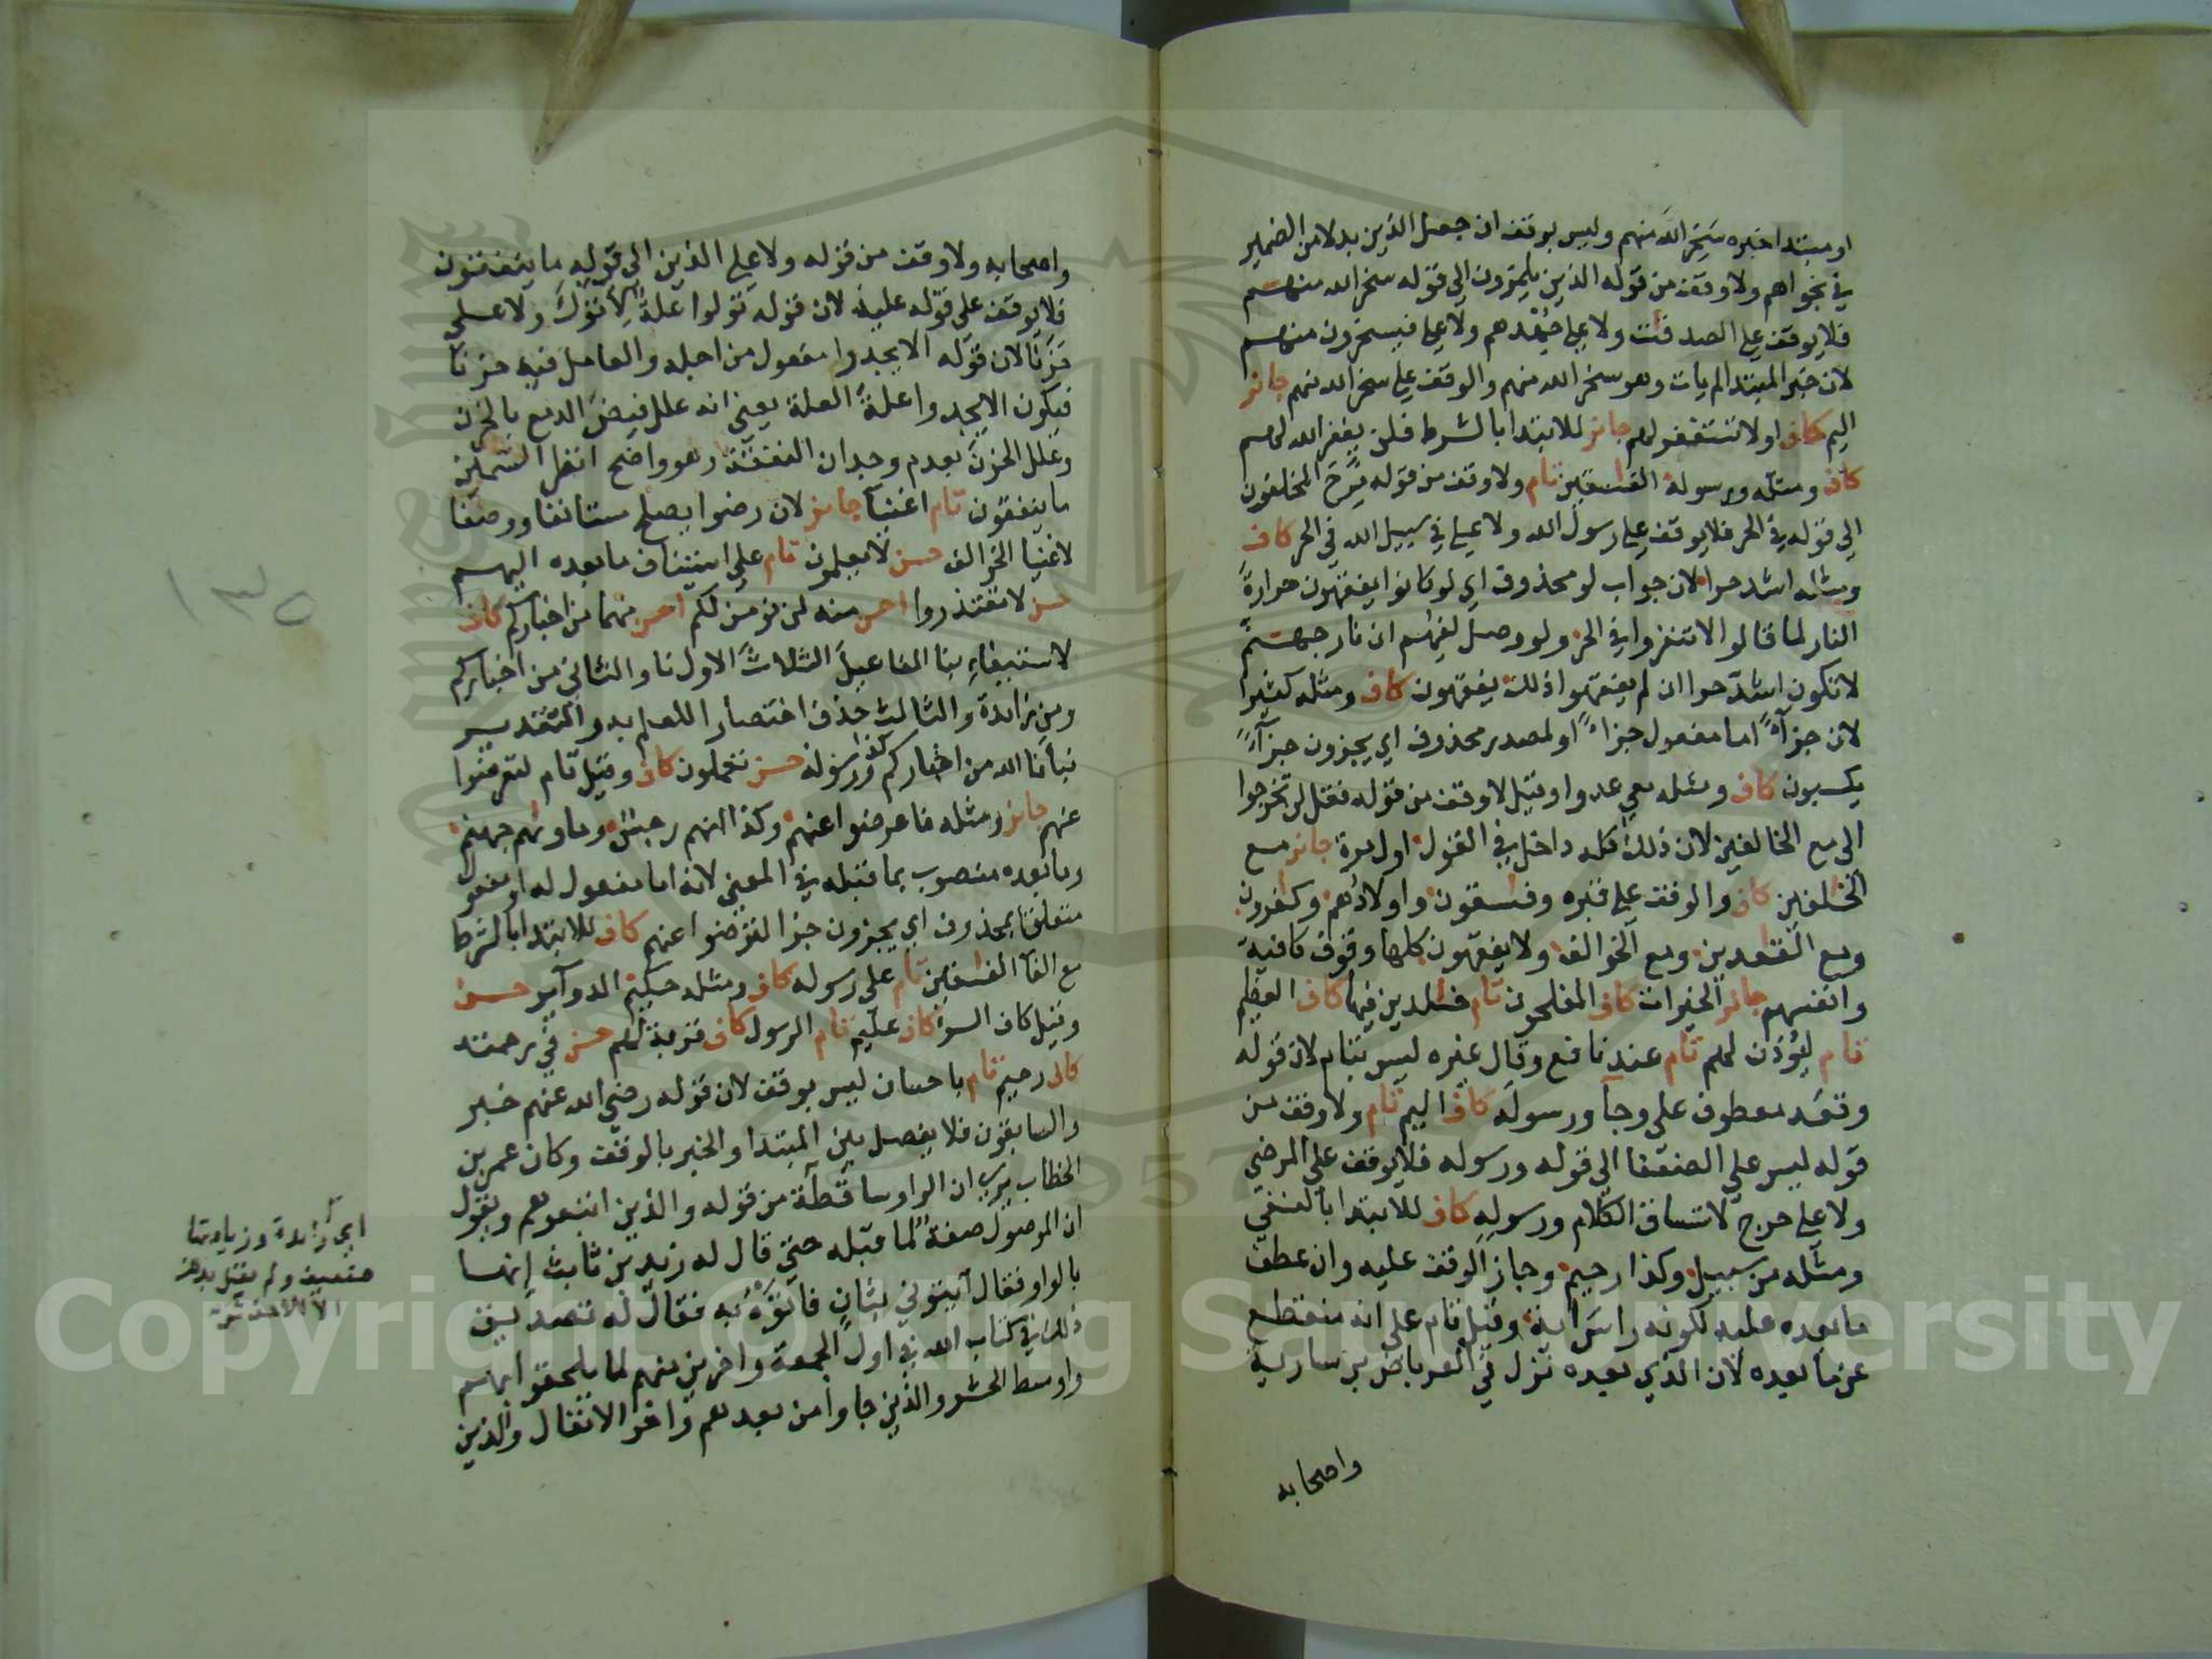 او مبتدا خبره سَخِرَ الله منهم وليس بوقف ان جعل الذين بدلا من الضمير
في نجواهم ولا وقف من قوله الذين يلمزون الى قوله سخر الله منهم
فلا يوقف على الصدقت ولا على جُهْدهم ولا على فيسخرون منهم
لان خبر المبتدا لم يات وهو سخر الله منهم والوقف على سخر الله منهم جائز
اليم كاف او لا تستغفر لهم جائز للابتدا بالشرط فلن يغفر الله لهم
كاف ومثله ورسوله الفسقين تام ولا وقف من قوله فَرِحَ المخلفون
الى قوله في الحر فلا يوقف على رسول الله ولا على في سبيل الله في الحر كاف
ومثله اشد حرا لان جواب لو محذوف اي لو كانوا يفقهون حرارة
النار لما قالوا لا تنفروا في الحر ولو وصل لفهم ان نار جهنم
لا تكون اشدّ حرا ان لم يفقهوا ذلك يفقهون كاف ومثله كثيرا
لان جزآءً اما مفعول جزاءً او لمصدر محذوف اي يجزون جزآءً
يكسبون كاف ومثله معي عدوا وقيل لا وقف من قوله فقل لن تخرجوا
الى مع الخالفين لان ذلك كله داخل في القول اول مرة جائز مع
الخلفين كاف والوقف على قبره وفسقون واولادهم وكفرون
ومع القعدين ومع الخوالف ولا يفقهون كلها وقوف كافية
وانفسهم جائز الخيرات كاف المفلحون تام خلدين فيها كاف العظيم
تام ليؤذن لهم تام عند نافع وقال غيره ليس بتام لان قوله
وقعد معطوف على وجآ ورسوله كاف اليم تام ولا وقف من
قوله ليس على الضعفا الى قوله ورسوله فلا يوقف على المرضى
ولا على حرج لاتساق الكلام ورسوله كاف للابتدا بالنفي
ومثله من سبيل وكذا رحيم وجاز الوقف عليه وان عطف
ما بعده عليه لكونه راسَ اية وقيل تام على انه منقطع
عن ما بعده لان الذي بعده نزل في العرباض بن سارية
واصحابه
واصحابه ولا وقف من قوله ولا على الذين الى قوله ما ينفقون
فلا يوقف على قوله عليه لان قوله تولوا علةٌ لِاَتَوْكَ ولا على
حَزَنًا لان قوله الا يجدوا مفعول من اجله والعامل فيه حزنا
فيكون الا يجدوا علةَ العلة يعني انه علل فيضَ الدمع بالحزن
وعلل الحزنَ بعدم وجدان النفقة وهو واضح انظر السمين
ما ينفقون تام اغنيآ جائز لان رضوا يصلح مستانفا ووصفا
لاغنيا الخوالف حسن لا يعلمون تام على استيناف ما بعده اليهم
حسن لا تعتذروا احسن منه لن نؤمن لكم احسن منهما من اخباركم كاف
لاستيفاءِ نبا المفاعيلَ الثلاثَ الاول نا والثاني من اخباركم
ومن زائدة والثالث حذف اختصارا للعلم به والتقدير
نبأنا الله من اخباركم كذا ورسوله حسن تعملون كاف وقيل تام لتعرضوا
عنهم جائز ومثله فاعرضوا عنهم وكذا انهم رجس وماوىهم جهنم
وما بعده منصوب بما قبله في المعنى لانه اما مفعول له او مفعول
متعلقا بمحذوف اي يجزون جزا لترضوا عنهم كاف للابتدا بالشرط
مع الفآ الفسقين تام على رسوله كاف ومثله حكيم الدوآير حسن
وقيل كاف السوء كاف عليم تام الرسول كاف قربة لهم حسن في رحمته
كاف رحيم تام باحسان ليس بوقف لان قوله رضي الله عنهم خبر
والسابقون فلا يفصل بين المبتدا والخبر بالوقف وكان عمر بن
الخطاب يرى ان الواو ساقطة من قوله والذين اتبعوهم ويقول
ان الموصول صفةٌ لما قبله حتى قال له زيد بن ثابت إنها
بالواو فقال آئتوني بثانٍ فاتَوْهُ به فقال له تصديق
ذلك في كتاب الله في اول الجمعة واخرين منهم لما يلحقوا بهم
واوسط الحشر والذين جاوا من بعدهم واخر الانفال والذين
١٣٥
اي زائدة وزيادتها
ضعيف ولم يقل بها
الا الاخفش